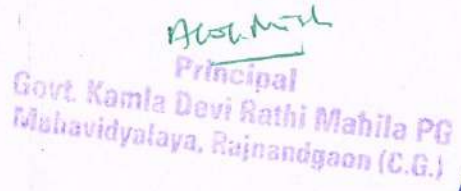 Principal
Govt. Kamla Devi Rathi Mahila PG
Mahavidyalaya, Rajnandgaon (C.G.)